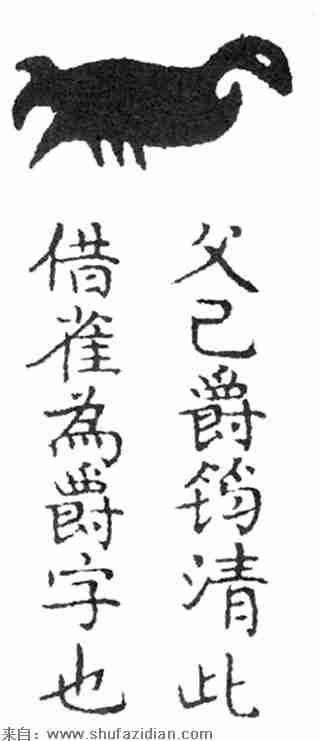 父己爵筠清此
借雀為爵字也
来自：www.shufazidian.com